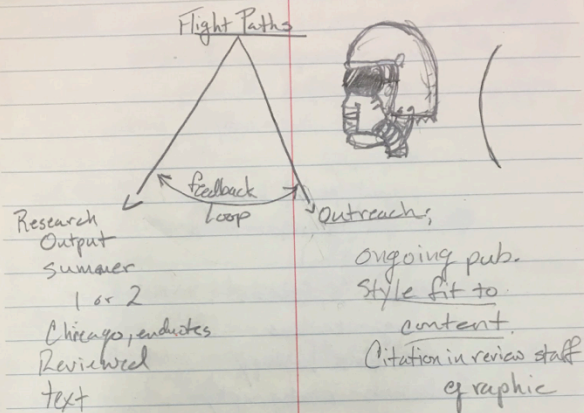 Flight Paths
feedback
Loop
Research
Output
summer
1 or 2
Chicago, endnotes
Reviewed
text
Outreach;
ongoing pub.
Style fit to
content.
Citation in review staff
graphic